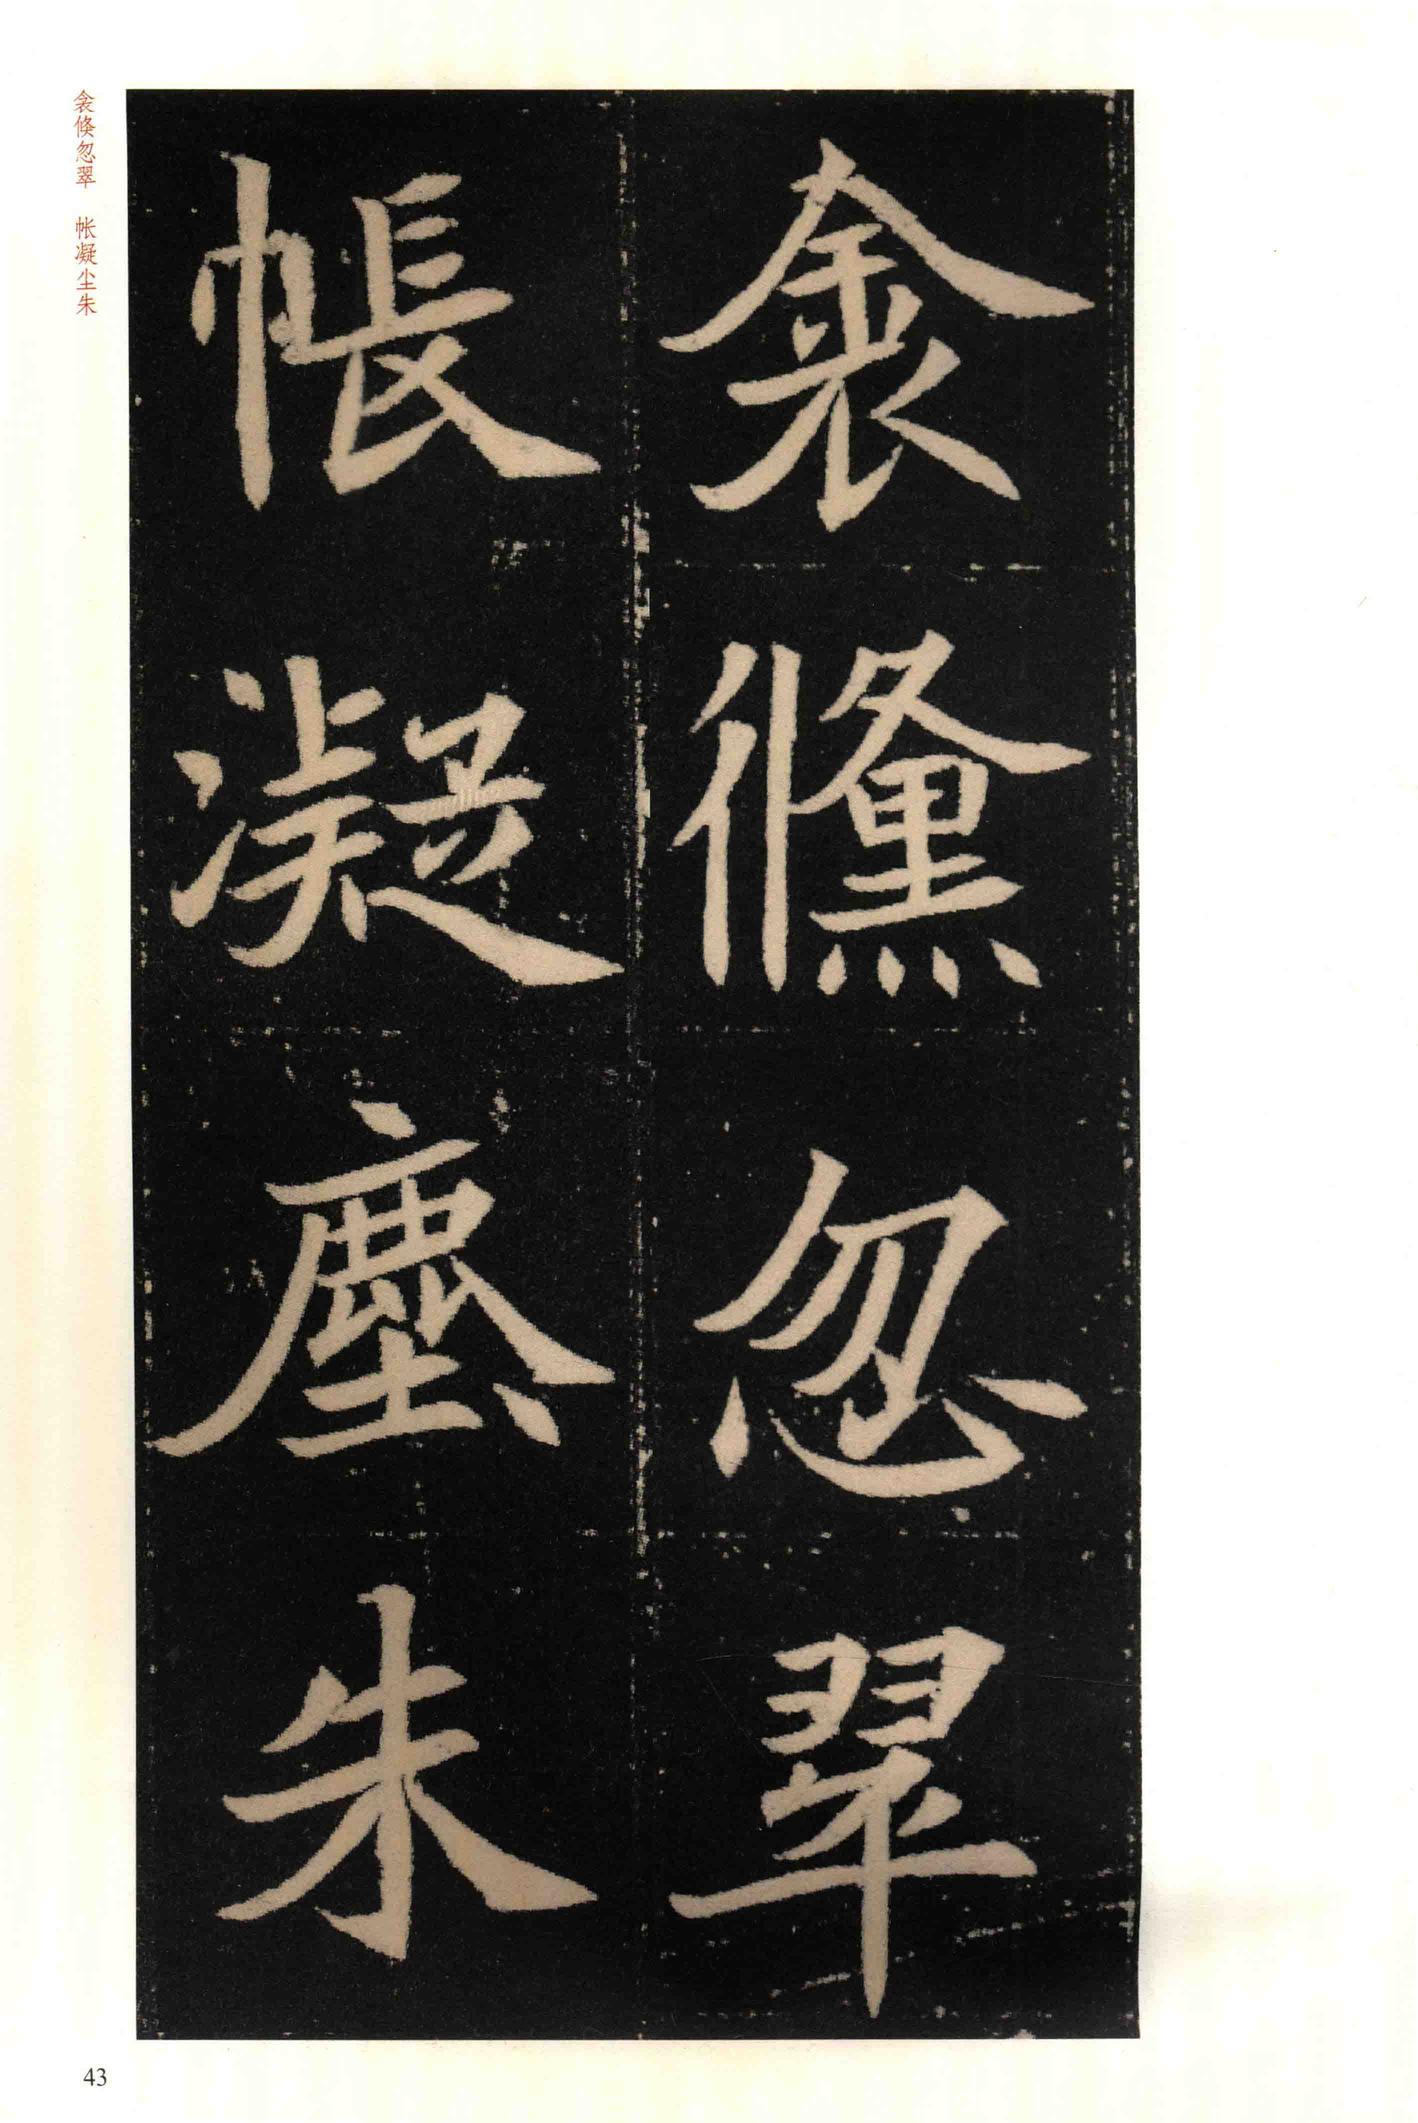 衾儵忽翠
帳凝塵朱
衾倏忽翠 帐凝尘朱
43